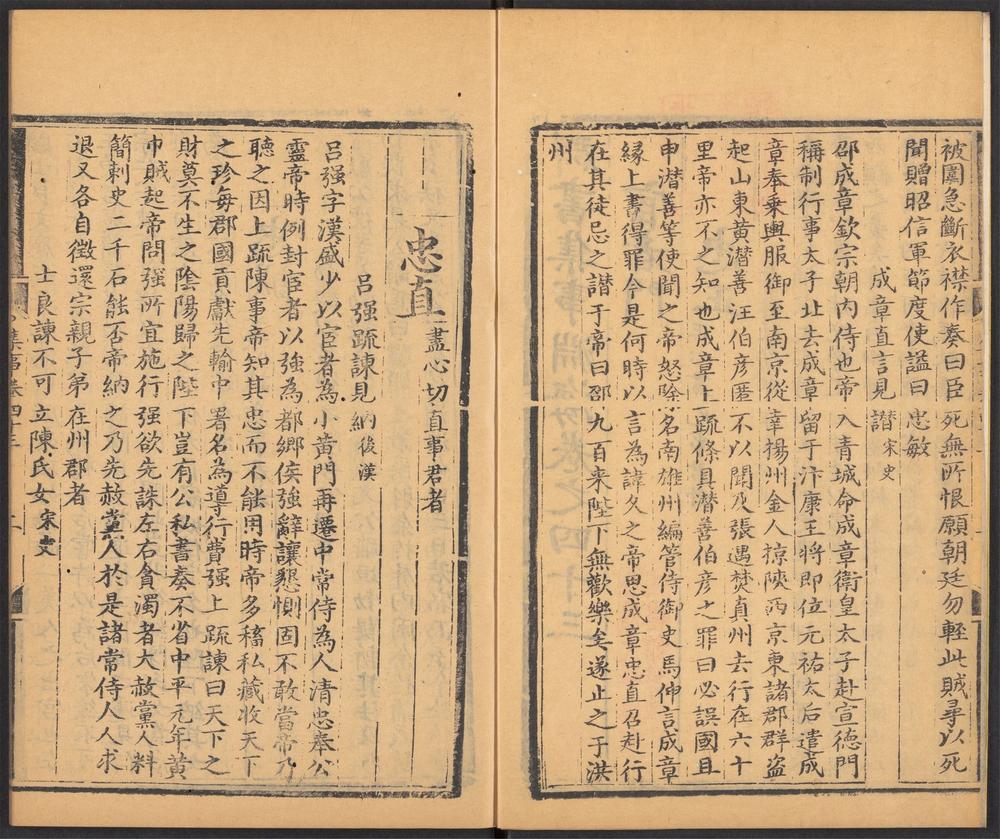 被圍急斷衣襟作奏曰臣死無所恨願朝廷勿輕此賊尋以死
聞贈昭信軍節度使謚曰忠敏
成章直言見譛宋史
邵成章欽宗朝内侍也帝入青城命成章衛皇太子赴宣德門
稱制行事太子北去成章留于汴康王將即位元祐太后遣成
章奉乘輿服御至南京從幸揚州金人掠陝西京東諸郡群盗
起山東黃潛善汪伯彦匿不以聞及張遇焚真州去行在六十
里帝亦不之知也成章上疏條具潛善伯彦之罪曰必誤國且
申潛善等使聞之帝怒除名南雄州編管侍御史馬伸言成章
緣上書得罪今是何時以言為諱久之帝思成章忠直召赴行
在其徒忌之譛于帝曰邵九百来陛下無歡樂矣遂止之于洪
州
忠直盡心切直事君者
吕强疏諫見納後漢
吕强字漢盛少以宦者為小黃門再遷中常侍為人清忠奉公
靈帝時例封宦者以強為都鄉侯強辭讓懇惻固不敢當帝乃
聽之因上疏陳事帝知其忠而不能用時帝多稸私藏收天下
之珍每郡國貢獻先輸中署名為導行費强上疏諫曰天下之
財莫不生之陰陽歸之陛下豈有公私書奏不省中平元年黄
巾賊起帝問强所宜施行强欲先誅左右貪濁者大赦黨人料
簡刺史二千石能否帝納之乃先赦黨人於是諸常侍人人求
退又各自徵還宗親子弟在州郡者
士良諫不可立陳氏女宋史
集事卷四十三